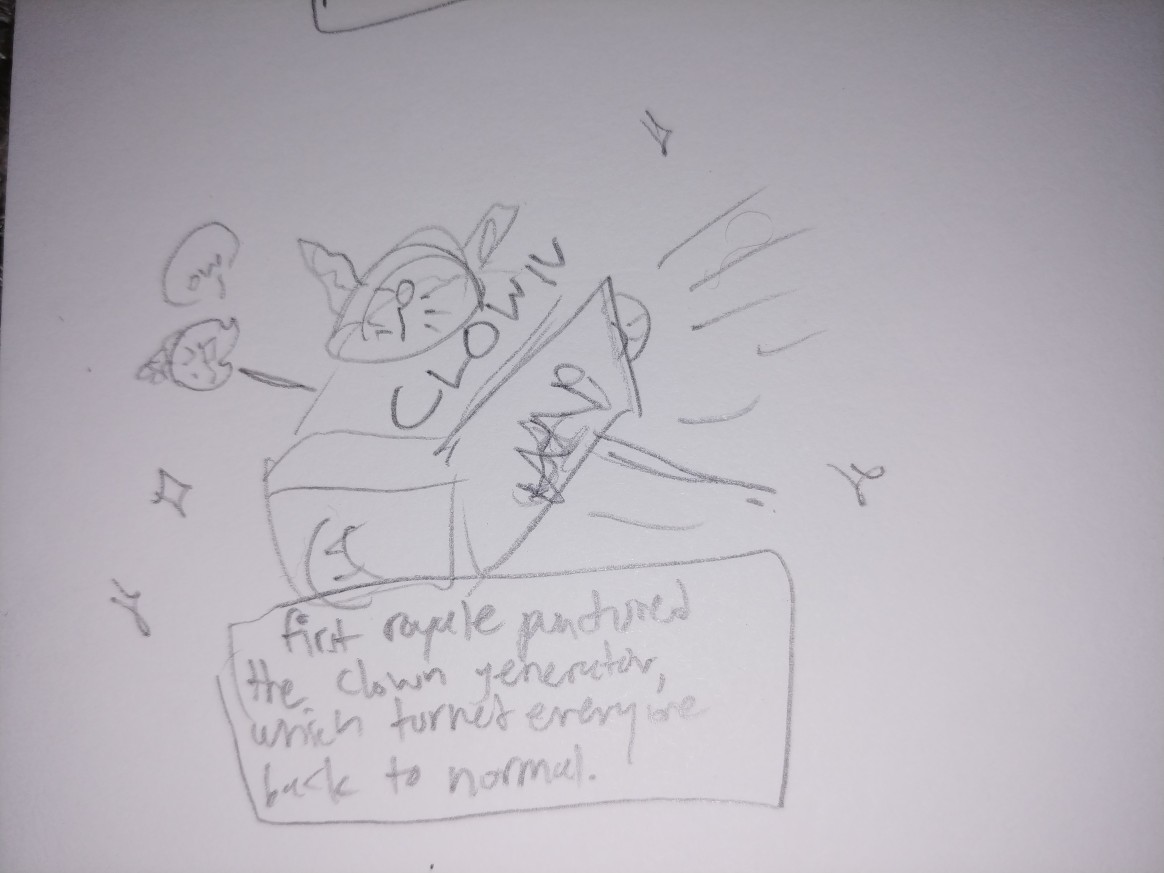 ow
CLOWN
first royale punctured
the clown generator,
which turned everyone
back to normal.